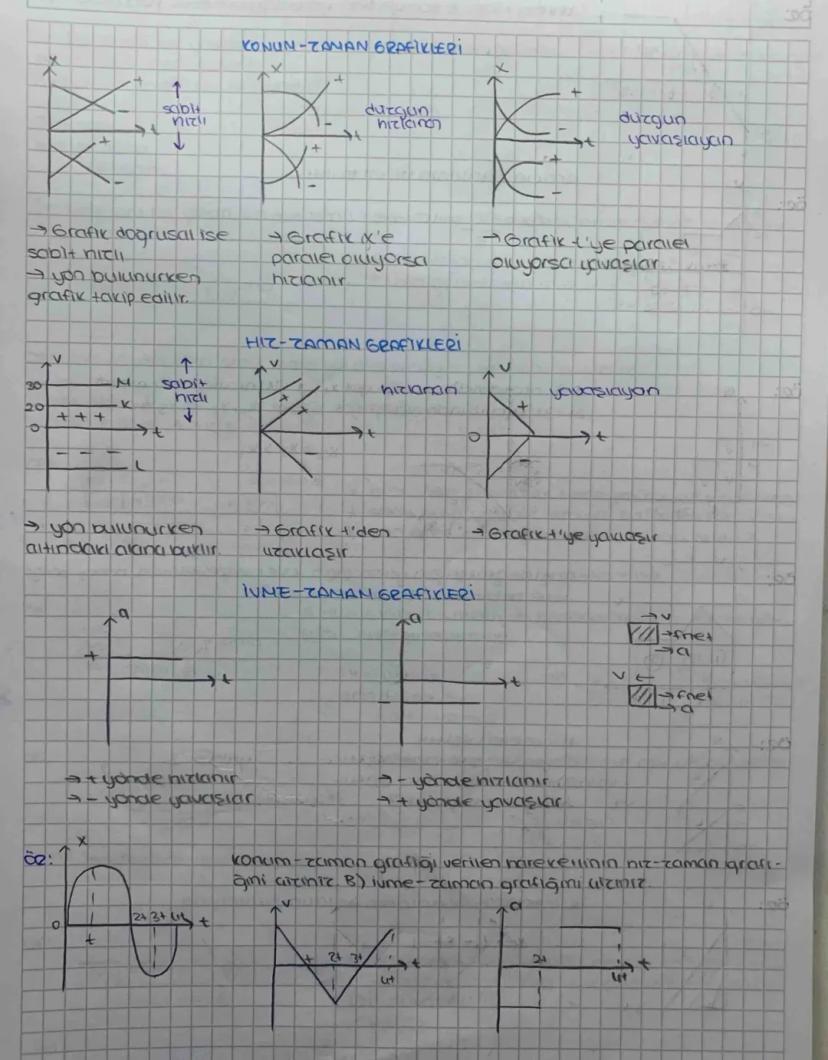 KONUM-ZAMAN GRAFİKLERİ
x
+
-
t
+
-
sabit
hızlı
x
+
-
t
+
-
düzgün
hızlanan
x
+
-
t
+
-
düzgün
yavaşlayan
→ Grafik doğrusal ise
sabit hızlı
→ yön bulunurken
grafik takip edilir.
→ Grafik x'e
paralel oluyorsa
hızlanır
→ Grafik t'ye paralel
oluyorsa yavaşlar.
HIZ-ZAMAN GRAFİKLERİ
v
30
M
20
K
+ + +
0
t
- - -
L
sabit
hızlı
v
+
+
-
t
hızlanan
v
+
0
t
-
yavaşlayan
→ yön bulunurken
altındaki alana bakılır.
→ Grafik t'den
uzaklaşır
→ Grafik t'ye yaklaşır
İVME-ZAMAN GRAFİKLERİ
a
+
t
a
-
t
→ v
→ fnet
→ a
v ←
→ fnet
→ a
→ + yönde hızlanır
→ - yönde yavaşlar
→ - yönde hızlanır
→ + yönde yavaşlar
ÖR:
x
0
t
2t 3t 4t
t
konum-zaman grafiği verilen hareketlinin hız-zaman grafi-
ğini çiziniz. B) ivme-zaman grafiğini çiziniz.
v
t
2t
3t
4t
t
a
2t
4t
t